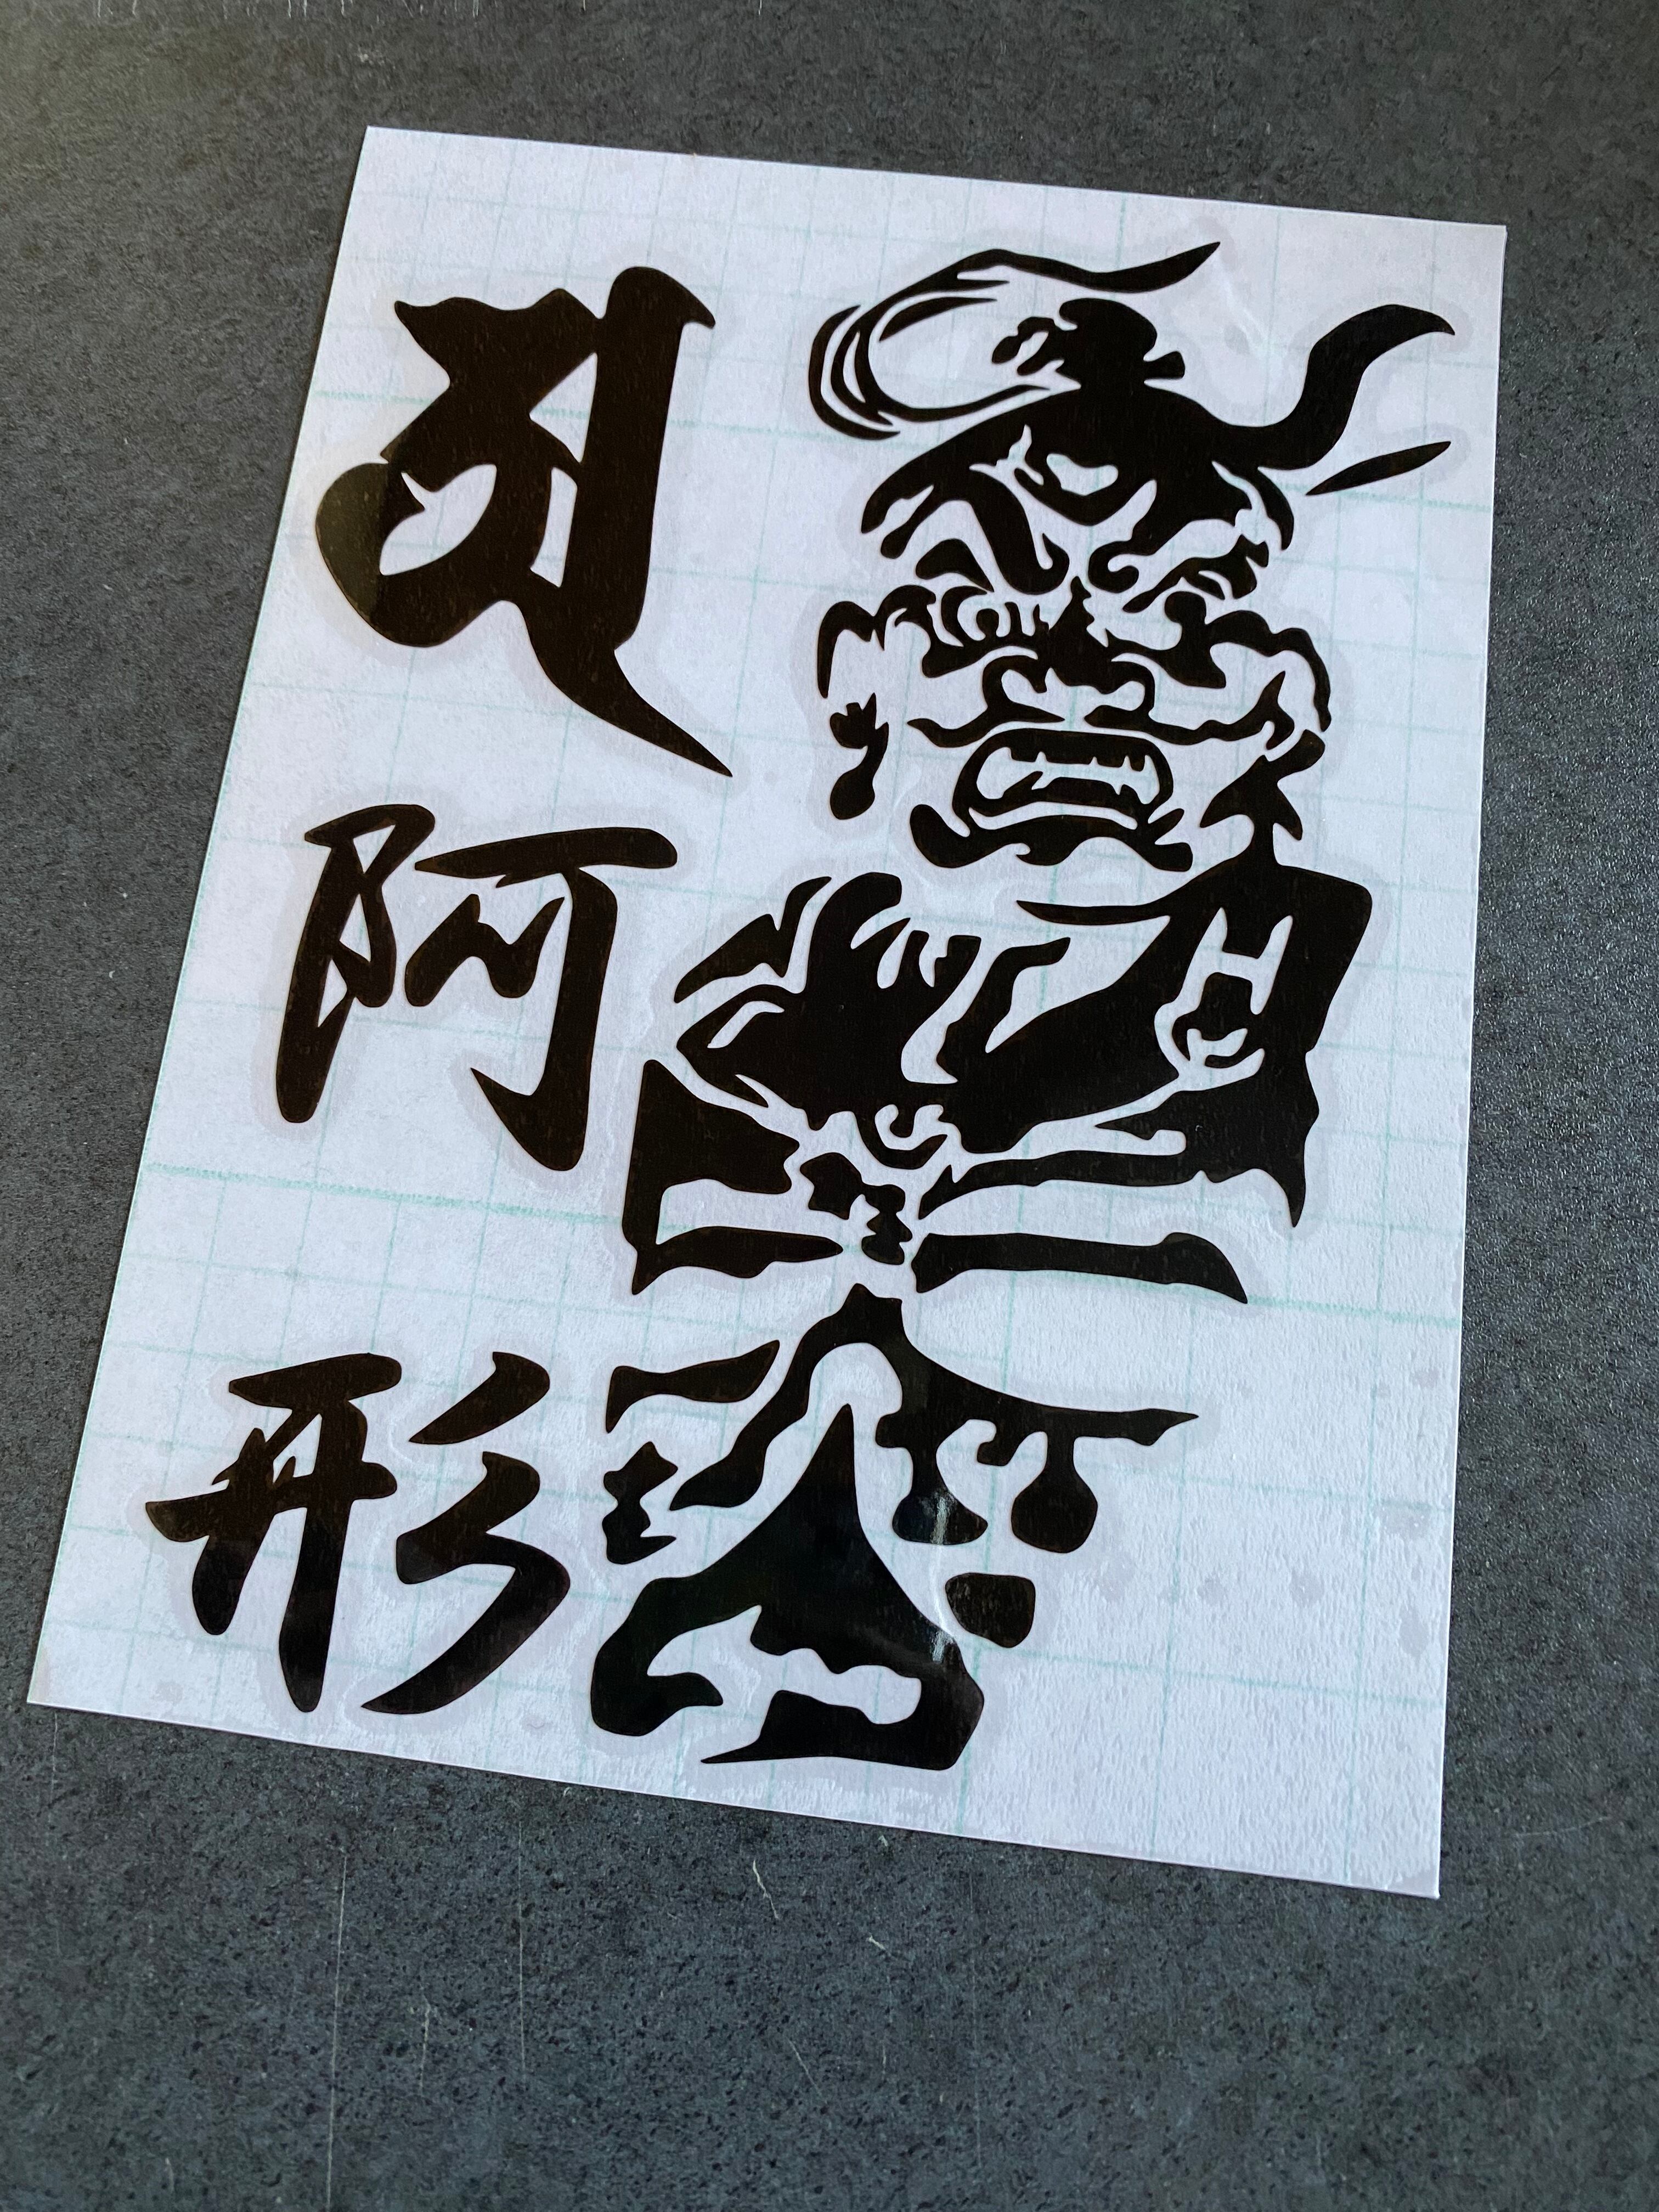 𑖀
阿
形